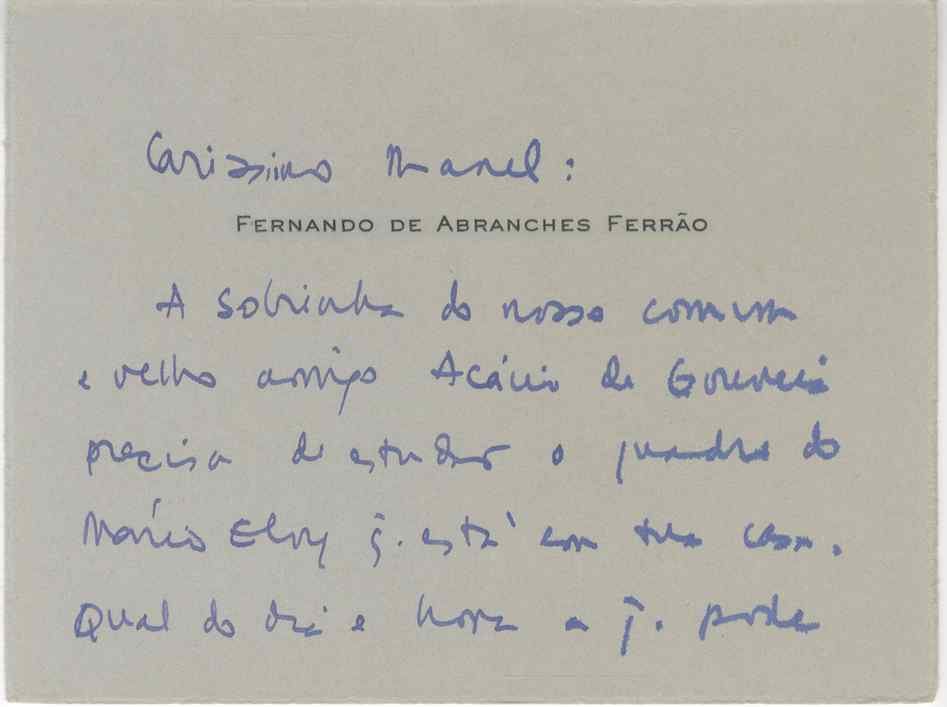 Carissimo Manel:
FERNANDO DE ABRANCHES FERRÃO
A sobrinha do nosso comum
e velho amigo Acácio de Gouveia
precisa de estudar o quadro do
Mário Eloy q. está em tua casa.
Qual do dia e hora a q. pode